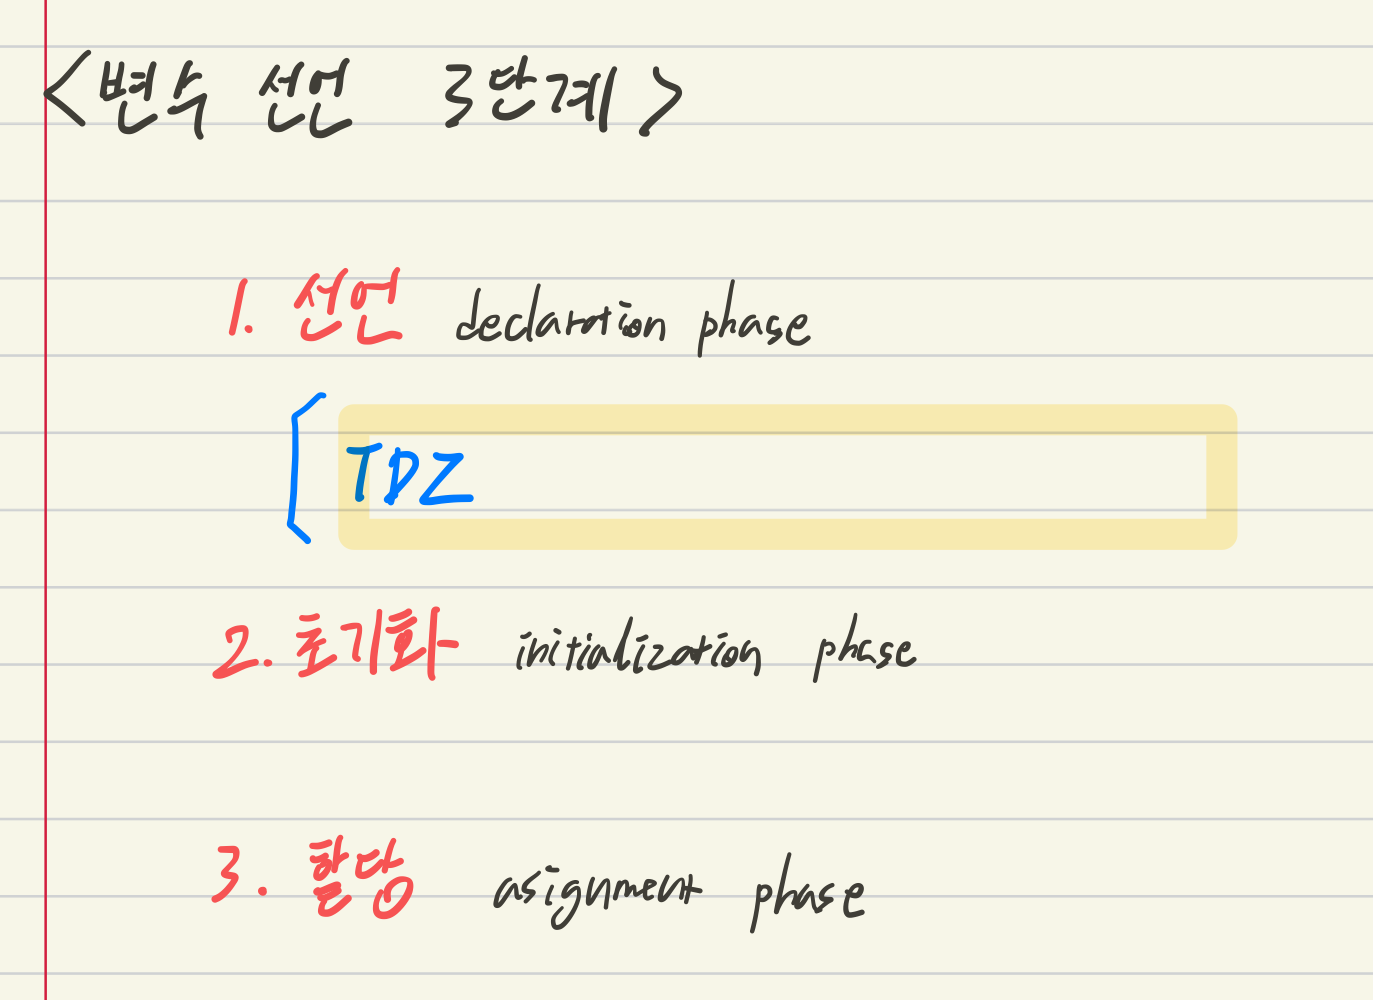 <변수 선언 3단계>
1. 선언 declaration phase
TDZ
2. 초기화 initialization phase
3. 할당 asignment phase